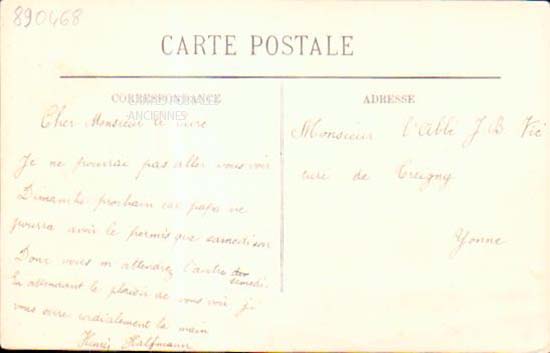 890468
CARTE POSTALE
CORRESPONDANCE
ANCIENNES
ADRESSE
Cher Monsieur le cure
Je ne pourrai pas aller vous voir
Dimanche prochain car papa ne
pourra avoir le permis que samedi soir
Donc vous m attendrez l'autre samedi
En attendant le plaisir de vous voir je
vous serre cordialement la main
Henri Halfmann
Monsieur l'Abbé J B Vié
cure de Treigny
Yonne